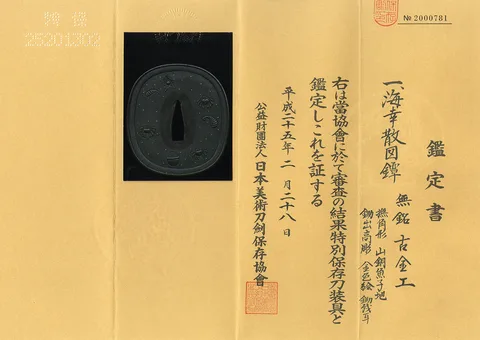 № 2000781
鑑定書
一、海幸散図鐔 無銘 古金工
撫角形 山銅魚子地
鋤出高彫 金色絵 鋤残耳
右は當協會に於て審査の結果特別保存刀装具と
鑑定しこれを証する
平成二十五年二月二十八日
公益財團法人 日本美術刀劍保存協會
25201302